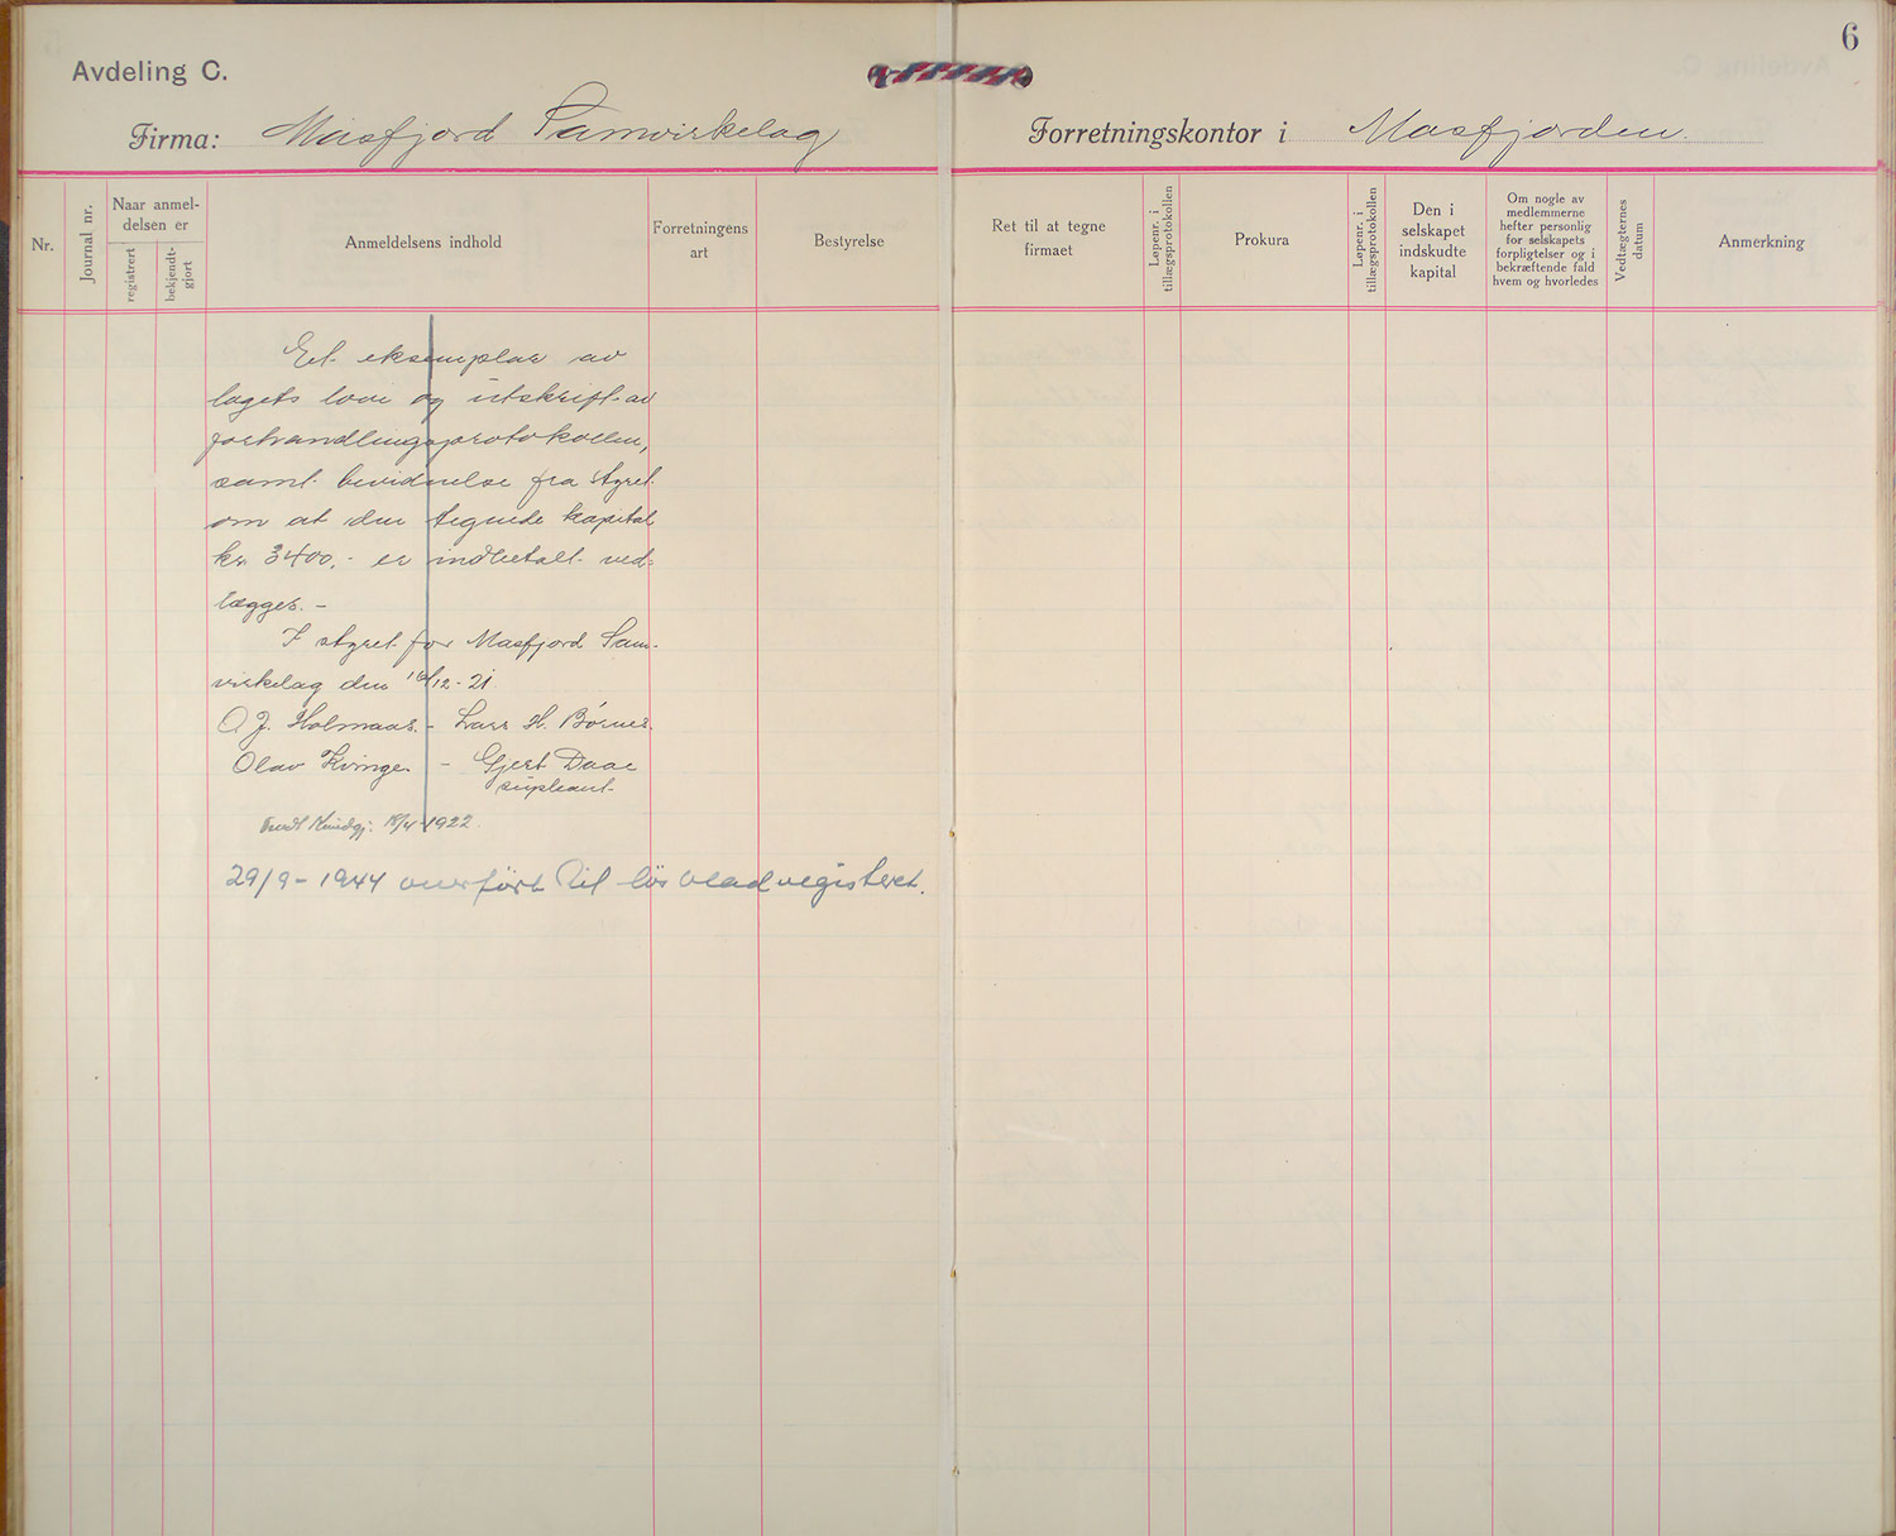 6
Avdeling C.
Firma: Masfjord Samvirkelag
Forretningskontor i Masfjorden.
Nr.
Journal nr.
Naar anmel-
delsen er
registrert
bekjendt-
gjort
Anmeldelsens indhold
Forretningens
art
Bestyrelse
Ret til at tegne
firmaet
Løpenr. i
tillægsprotokollen
Prokura
Løpenr. i
tillægsprotokollen
Den i
selskapet
indskudte
kapital
Om nogle av
medlemmerne
hefter personlig
for selskapets
forpligtelser og i
bekræftende fald
hvem og hvorledes
Vedtægternes
datum
Anmerkning
Et eksemplar av
lagets love og utskrift av
forhandlingsprotokollen,
samt bevidnelse fra styret
om at den tegnede kapital
kr. 3400,- er indbetalt ved-
lægges. -
I styret for Masfjord Sam-
virkelag den 16/12-21.
O J. Holmaas. - Lars H. Børnes.
Olav Kvinge. - Gjert Daae
supleant.
Kundgj: 18/4-1922.
29/9-1944 overført til løsbladregisteret.